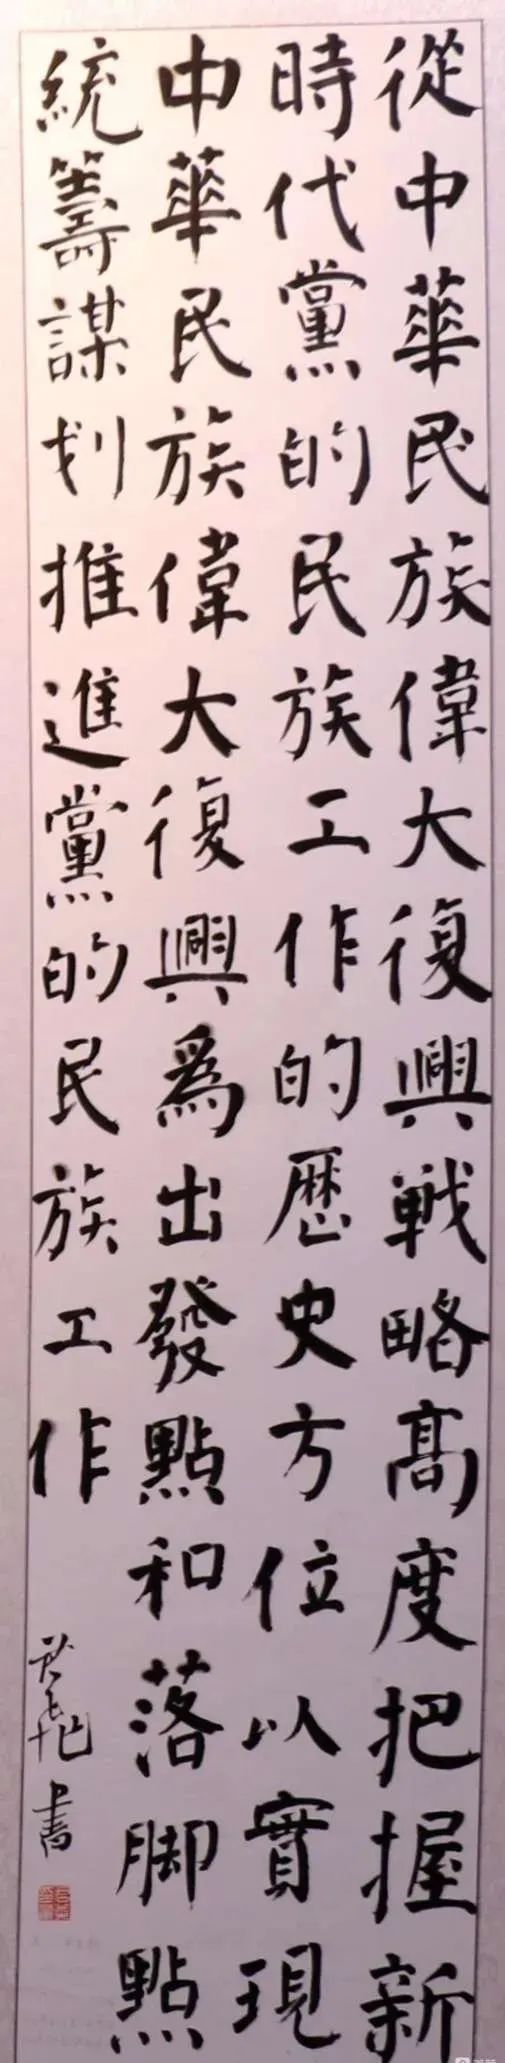 從中華民族偉大復興戦略高度把握新
時代黨的民族工作的歷史方位以實現
中華民族偉大復興爲出發點和落脚點
統籌謀划推進黨的民族工作
書